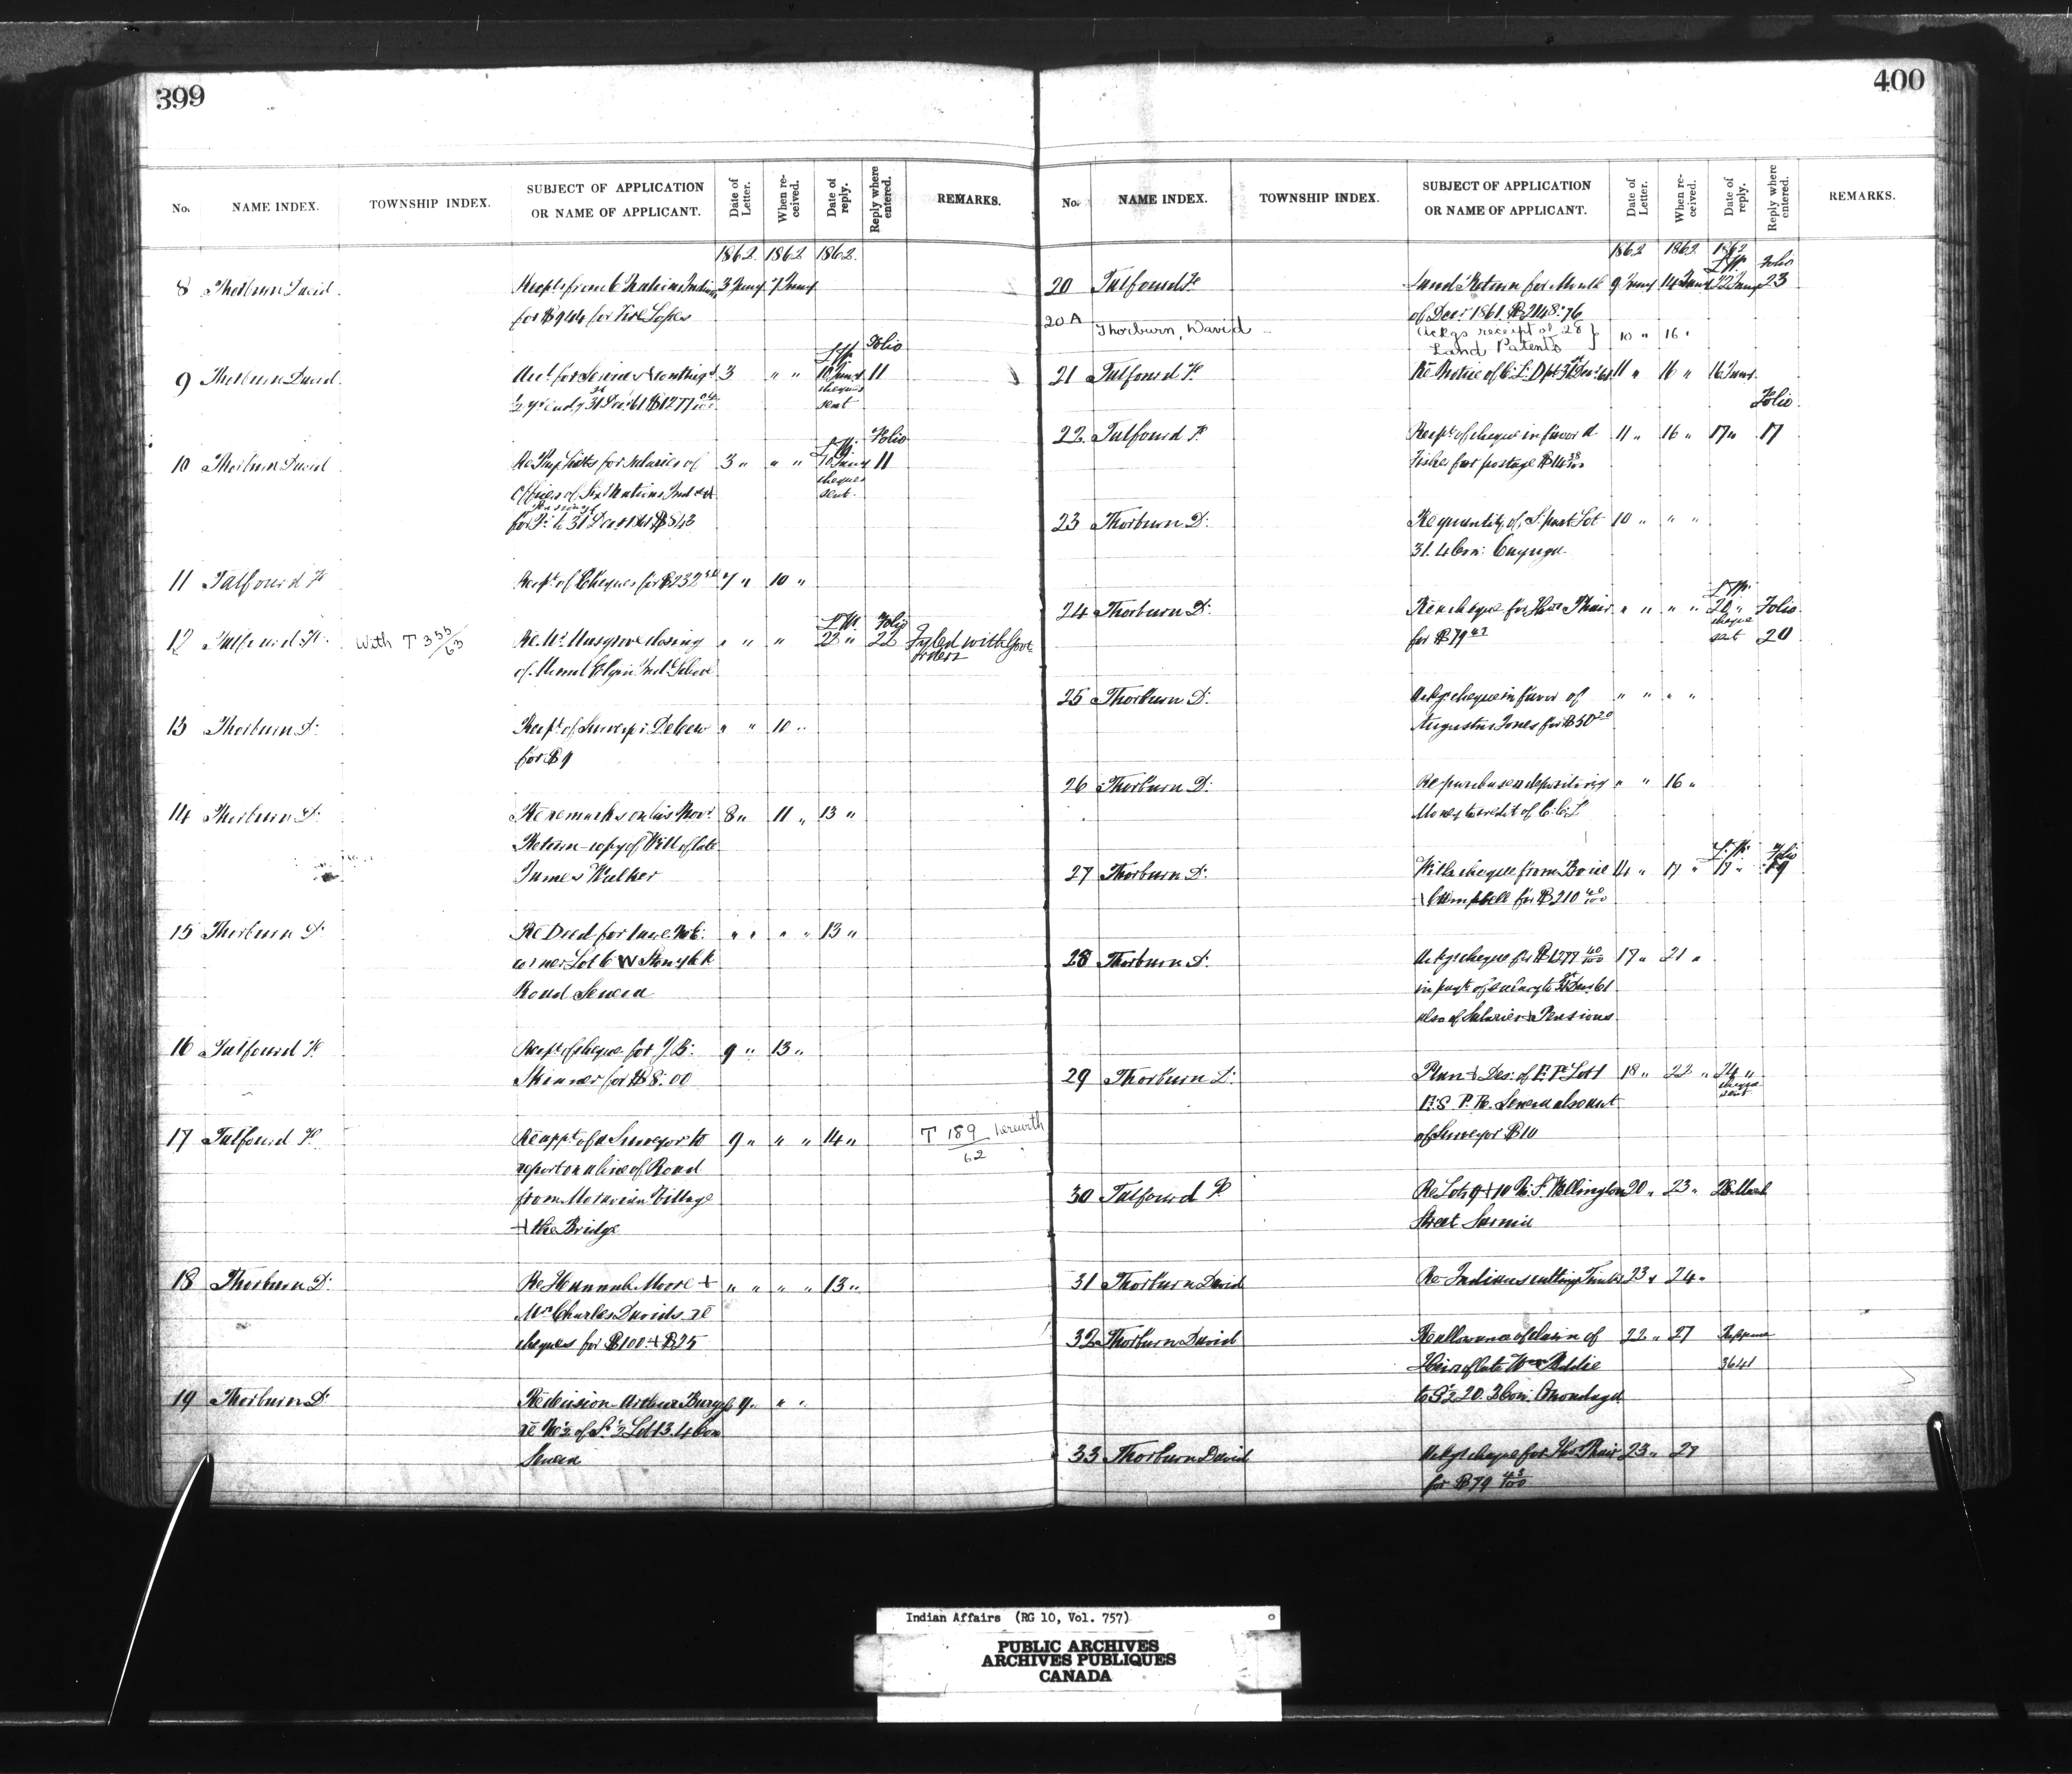 399
No. NAME INDEX. TOWNSHIP INDEX. SUBJECT OF APPLICATION OR NAME OF APPLICANT. Date of Letter. When received. Date of reply. Reply where entered. REMARKS.
1862 1862 1862
8 Thorburn David Recpts from 6 Nations Indians 3 Jany 7 Jany
for $944 for
Folio
9 Thorburn David Acct for Services 3 " " 10 Jany 11
½ yr endg 31st Decr 61 $1277 cheque
sent
Folio
10 Thorburn David Re Pay Lists for salaries of 3 " " " 10 Jany 11
Officers of Six Nations Ind cheques
Pensions sent
for to 31 Decr $843
11 Talfourd F Recpt of Cheques for $232 7 " 10 "
Folio
12 Talfourd F. With T 355/63 Re Wm Musgrove closing " " " 22 " 22 Fyled with Govt Orders
of Mount Elgin Ind School
13 Thorburn D. Recpt of Surveyor DeCew " " 10 "
for $9
14 Thorburn D. Re remarks on his Novr 8 " 11 " 13 "
Return - copy of Will of late
James Walker
15 Thorburn D. Re Deed for 1 acre N.E. " " " " 13 "
corner Lot 6 W Stony Ck
Road Seneca
16 Talfourd F. Recpt of cheque for J.B. 9 " 13 "
Skinner for $8.00
17 Talfourd F. Re appt of a Surveyor to 9 " " " 14 " T 189/62 herewith
report on a line of Road
from Moravian Village
+ the Bridge
18 Thorburn D. Re Hannah Moore + " " " " 13 "
Mrs Charles Davids re
cheques for $100 + $25
19 Thorburn D. Re decision Arthur Burgess 9 " " "
re N½ of S½ Lot 13. 4 Con
Seneca
400
No. NAME INDEX. TOWNSHIP INDEX. SUBJECT OF APPLICATION OR NAME OF APPLICANT. Date of Letter. When received. Date of reply. Reply where entered. REMARKS.
1862 1862 1862
Folio
20 Talfourd F. Land Return for Month 9 Jany 14 Jany 22 Jany 23
of Decr 1861 $2148.76
20A Thorburn, David Ackgs receipt of 28 } 10 " 16 "
Land Patents
21 Talfourd F. Re Notice of C. L. Dpt 31st Decr 61 11 " 16 " 16 Jany
Folio
22 Talfourd F. Recpt of cheque in favor of 11 " 16 " 17 " 17
Fisher for postage $14 38/100
23 Thorburn D. Re quantity of S. part Lot 10 " " "
31. 4 Con: Cayuga
24 Thorburn D. Re cheque for Phair " " " " 20 " Folio
for $79 43 cheque
sent 20
25 Thorburn D. Ackgs cheque in favor of " " " "
Augustus Jones for $50 20
26 Thorburn D. Re purchasers depositing " " 16 "
Money to credit of C. C. L
Folio
27 Thorburn D. With cheque from Bown 14 " 17 " 17 " 19
Campbell for $210 40/100
28 Thorburn D. Ackgs cheque for $1277 40/100 17 " 21 "
in payt of salary to 31st Decr 61
also of Salaries + Pensions
29 Thorburn D. Plan + Des: of E. Pt Lot 1 18 " 22 " 24 "
E.S P. R. Seneca also acct cheque
of Surveyor $10 sent
30 Talfourd F. Re Lots 9 + 10 N. S. Wellington 20 " 23 " 28 March
Street Sarnia
31 Thorburn David Re Indians cutting Timber 23 " 24 "
32 Thorburn David Re allowance of claim of 22 " 27
Heirs of late Wm Peddie 3641
to S½ 20. 3 Con: Onondaga
33 Thorburn David Ackgs cheque for Phair 23 " 27
for $79 43/100
Indian Affairs (RG 10, Vol. 757)
PUBLIC ARCHIVES
ARCHIVES PUBLIQUES
CANADA